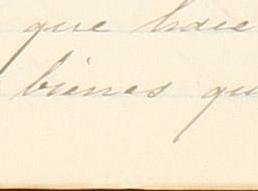 que hace
bienes qu